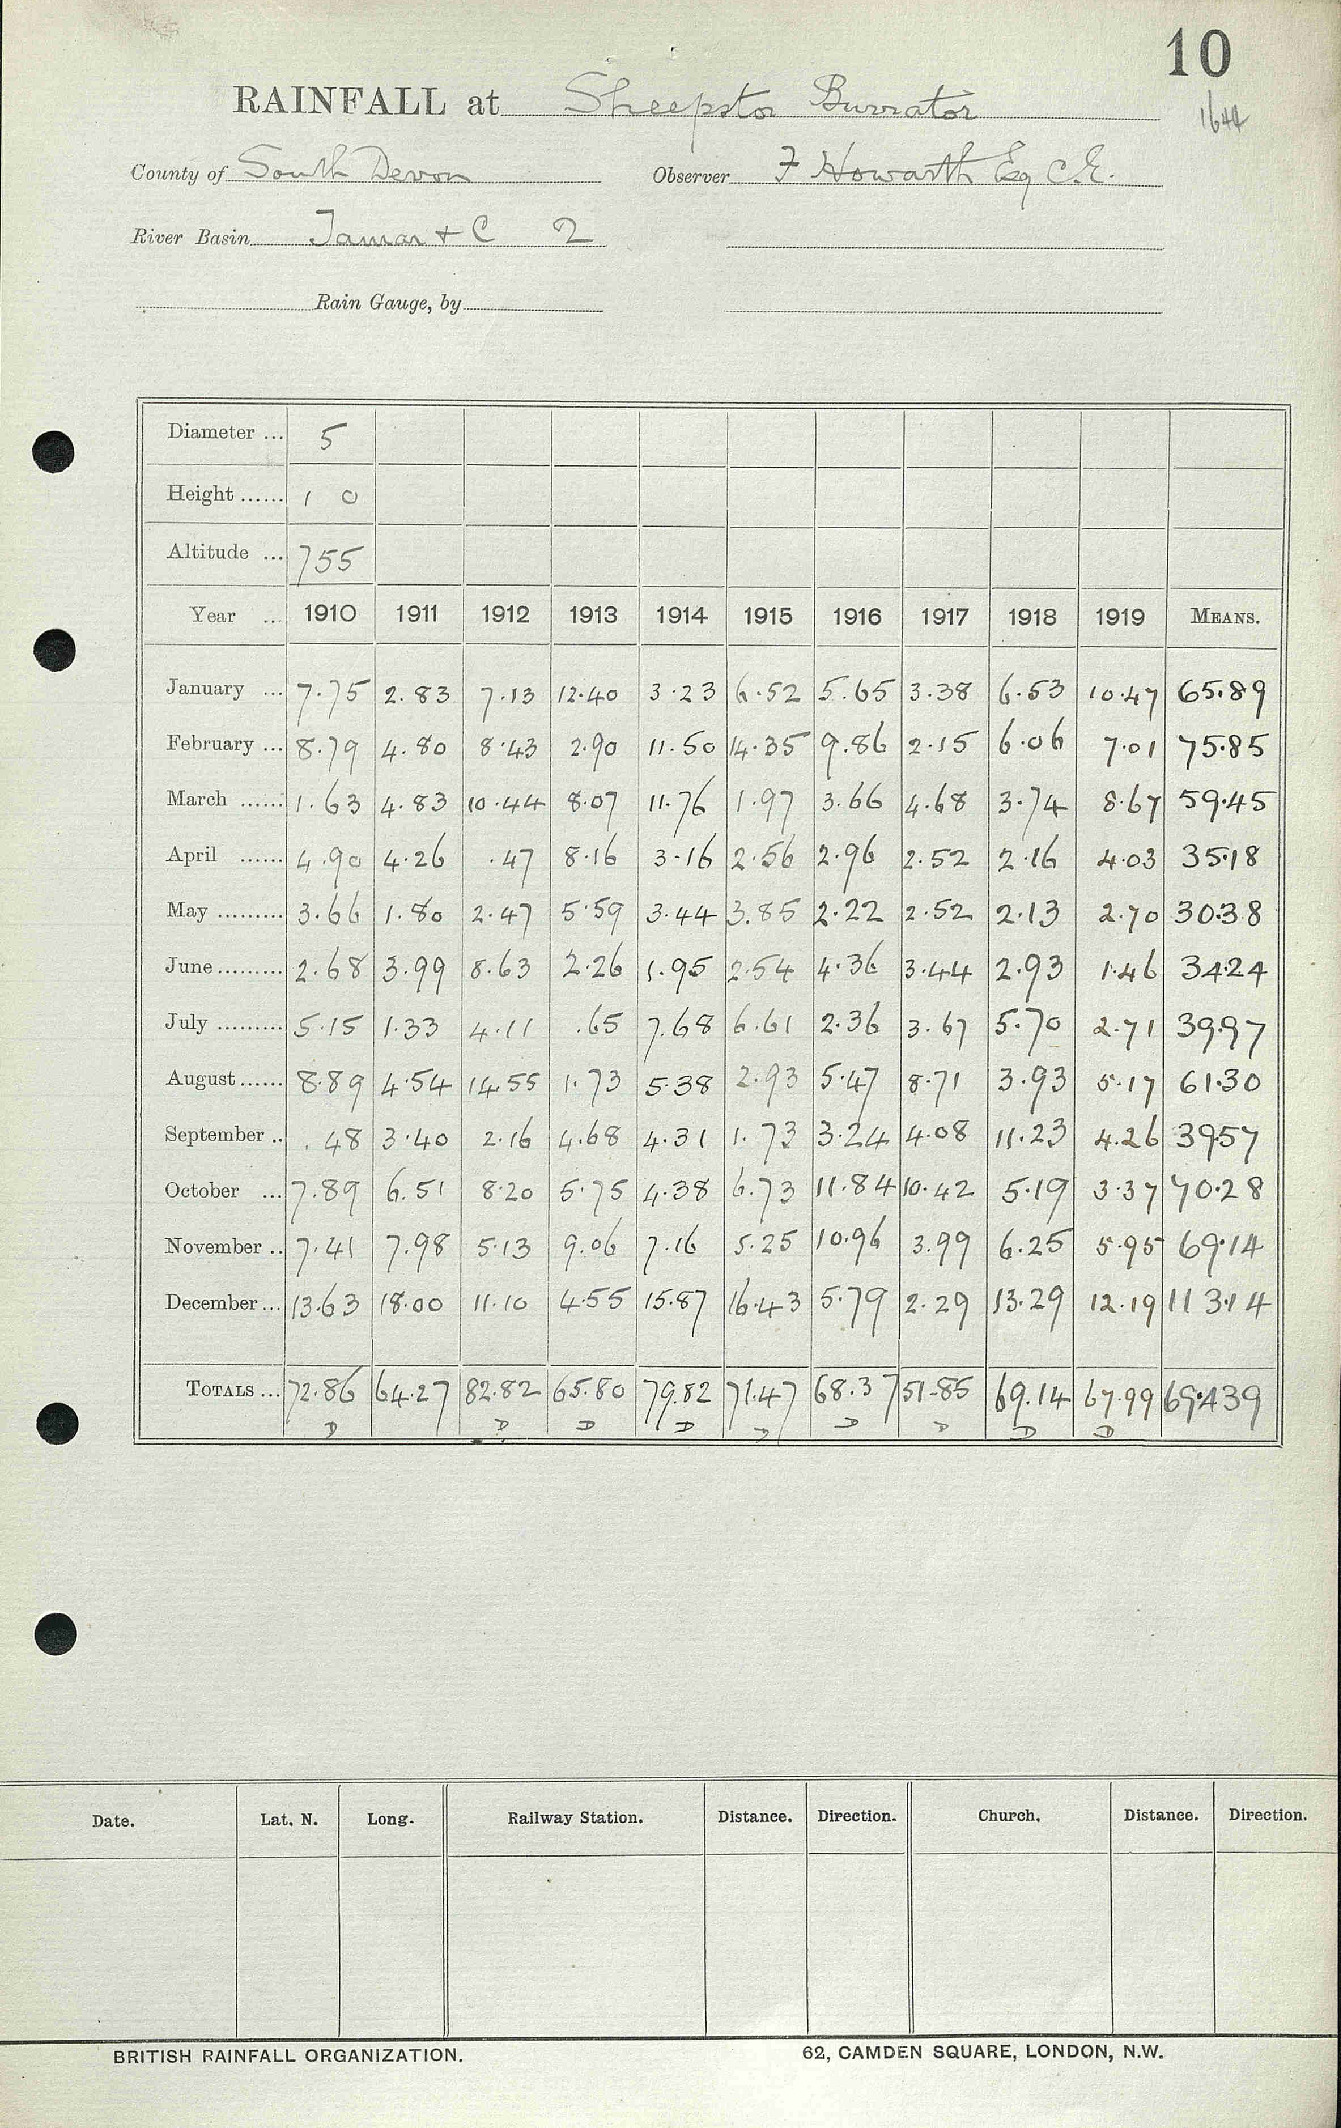 10
RAINFALL at Sheepstor Burrator
1644
County of South Devon Observer F Howarth Esq C.E.
River Basin Tamar + C 2
Rain Gauge, by
Diameter ... 5
Height ...... 1 0
Altitude ... 755
Year ... 1910 1911 1912 1913 1914 1915 1916 1917 1918 1919 MEANS.
January ... 7.75 2.83 7.13 12.40 3.23 6.52 5.65 3.38 6.53 10.47 65.89
February ... 8.79 4.80 8.43 2.90 11.50 14.35 9.86 2.15 6.06 7.01 75.85
March ...... 1.63 4.83 10.44 8.07 11.76 1.97 3.66 4.68 3.74 8.67 59.45
April ...... 4.90 4.26 .47 8.16 3.16 2.56 2.96 2.52 2.16 4.03 35.18
May ......... 3.66 1.80 2.47 5.59 3.44 3.85 2.22 2.52 2.13 2.70 30.38
June ......... 2.68 3.99 8.63 2.26 1.95 2.54 4.36 3.44 2.93 1.46 34.24
July ......... 5.15 1.33 4.11 .65 7.68 6.61 2.36 3.67 5.70 2.71 39.97
August ...... 8.89 4.54 14.55 1.73 5.38 2.93 5.47 8.71 3.93 5.17 61.30
September .. .48 3.40 2.16 4.68 4.31 1.73 3.24 4.08 11.23 4.26 39.57
October ... 7.89 6.51 8.20 5.75 4.38 6.73 11.84 10.42 5.19 3.37 70.28
November .. 7.41 7.98 5.13 9.06 7.16 5.25 10.96 3.99 6.25 5.95 69.14
December ... 13.63 18.00 11.10 4.55 15.87 16.43 5.79 2.29 13.29 12.19 113.14
TOTALS ... 72.86 64.27 82.82 65.80 79.82 71.47 68.37 51.85 69.14 67.99 694.39
D D D D D D D D D
Date. Lat. N. Long. Railway Station. Distance. Direction. Church. Distance. Direction.
BRITISH RAINFALL ORGANIZATION. 62, CAMDEN SQUARE, LONDON, N.W.